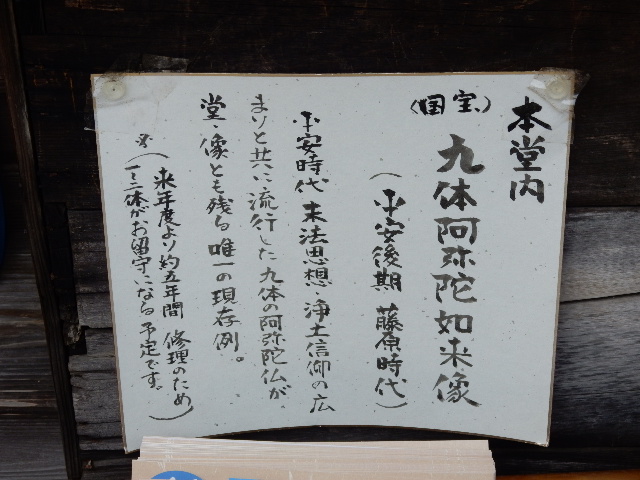 本堂内
(国宝)
九体阿弥陀如来像
(平安後期 藤原時代)
平安時代 末法思想・浄土信仰の広
まりと共に流行した九体の阿弥陀仏が
堂・像とも残る唯一の現存例。
※(来年度より約五年間 修理のため
一~二体がお留守になる予定です。)